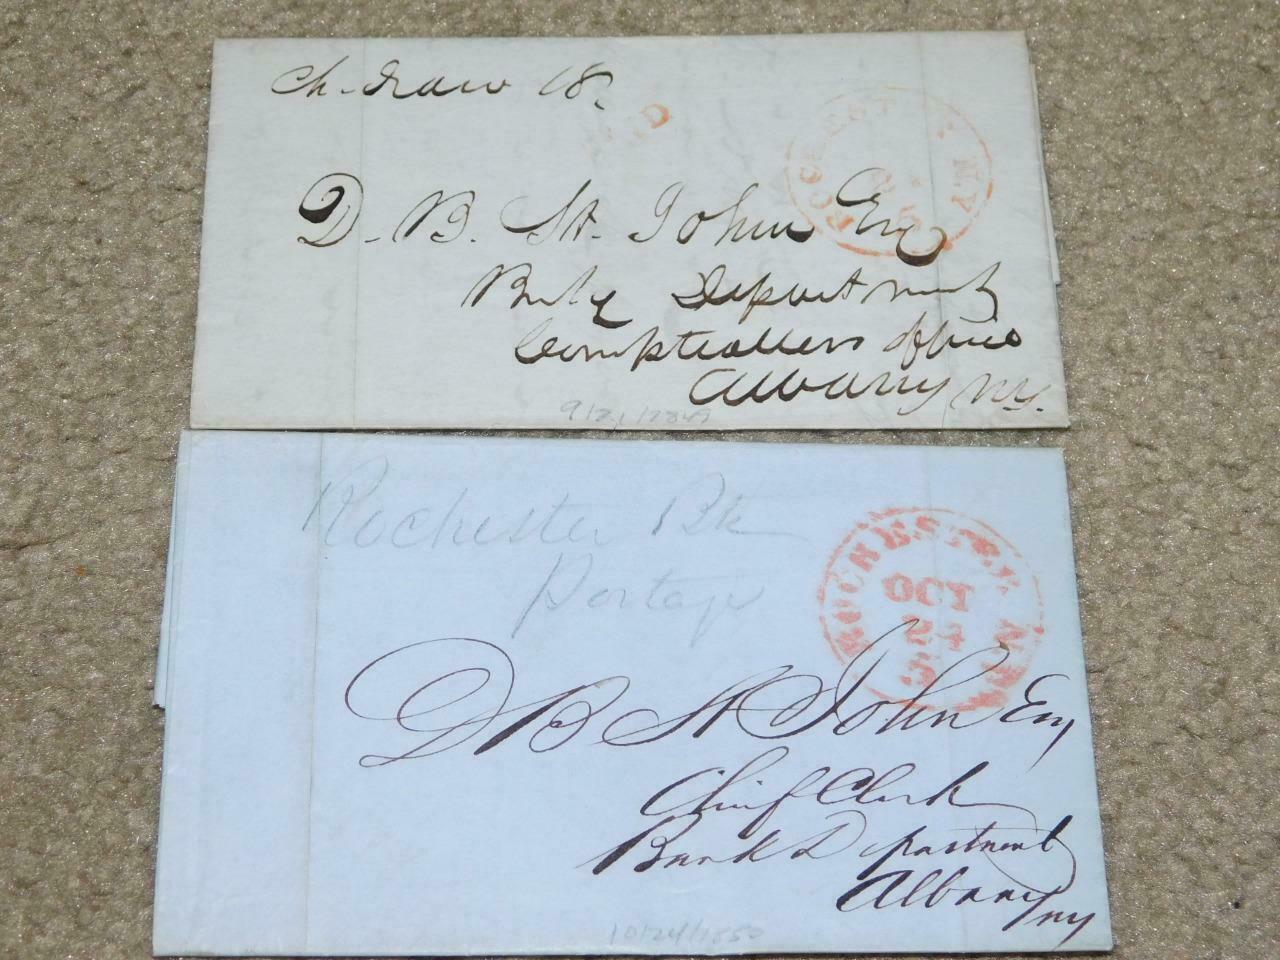 Ch. draw 18.
PAID
ROCHESTER N.Y.
5
D. B. St. John Esq
Bnkg Department
Comptrollers office
Albany NY.
Rochester Bk
Postage
ROCHESTER N.Y.
OCT
24
D B St John Esq
Chief Clerk
Bank Department
Albany NY
10/24/1850